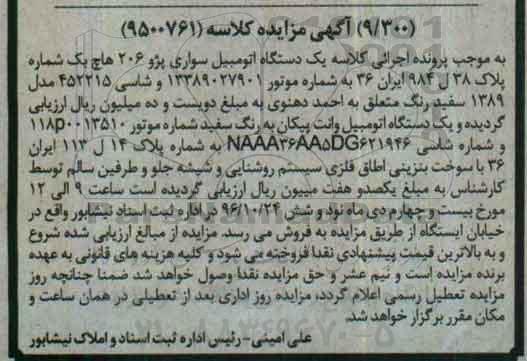 (۹/۳۰۰) آگهی مزایده کلاسه (۹۵۰۰۷۶۱)
به موجب پرونده اجرائی کلاسه یک دستگاه اتومبیل سواری پژو ۲۰۶ هاچ بک شماره
پلاک ۳۸ ل ۹۸۴ ایران ۳۶ به شماره موتور ۱۳۳۸۹۰۲۷۹۰۱ و شاسی ۴۵۲۲۱۵ مدل
۱۳۸۹ سفید رنگ متعلق به احمد دهنوی به مبلغ دویست و ده میلیون ریال ارزیابی
گردیده و یک دستگاه اتومبیل وانت پیکان به رنگ سفید شماره موتور ۱۱۸p۰۰۱۳۵۱۰
و شماره شاسی NAAA۳۶AA۵DG۶۲۱۹۴۶ به شماره پلاک ۱۴ ل ۱۱۳ ایران
۳۶ با سوخت بنزینی اطاق فلزی سیستم روشنایی و شیشه جلو و طرفین سالم توسط
کارشناس به مبلغ یکصدو هفت میبیون ریال ارزیابی گردیده است ساعت ۹ الی ۱۲
مورخ بیست و چهارم دی ماه نود و شش ۹۶/۱۰/۲۴ در اداره ثبت اسناد نیشابور واقع در
خیابان ایستگاه از طریق مزایده به فروش می رسد. مزایده از مبالغ ارزیابی شده شروع
و به بالاترین قیمت پیشنهادی نقدا فروخته می شود و کلیه هزینه های قانونی به عهده
برنده مزایده است و نیم عشر و حق مزایده نقدا وصول خواهد شد ضمنا چنانچه روز
مزایده تعطیل رسمی اعلام گردد، مزایده روز اداری بعد از تعطیلی در همان ساعت و
مکان مقرر برگزار خواهد شد.
علی امینی - رئیس اداره ثبت اسناد و املاک نیشابور